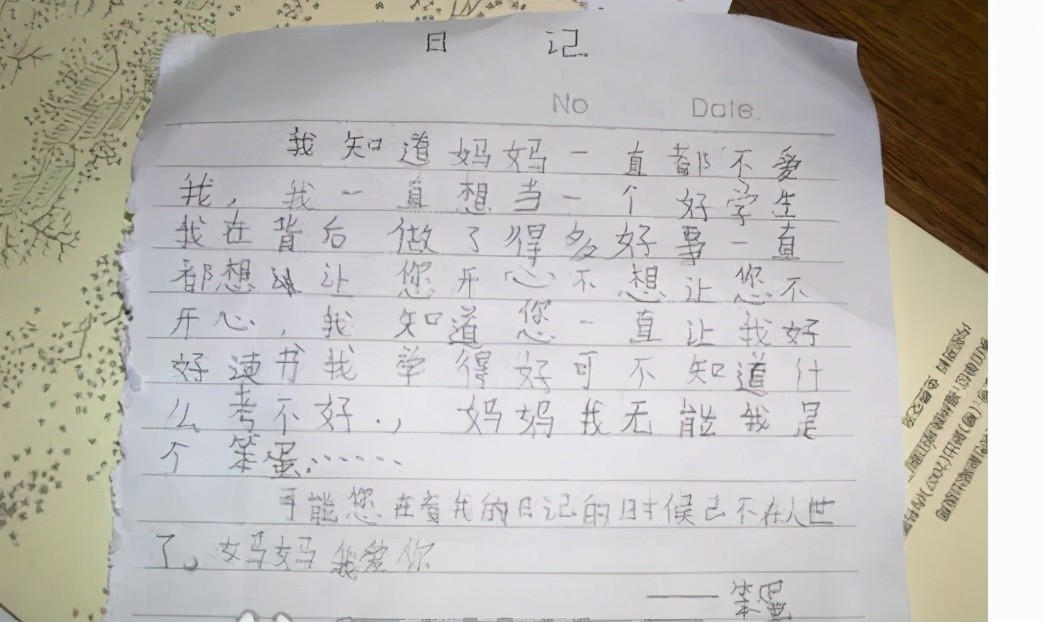 日 记
No Date.
我知道妈妈一直都不爱
我，我一直想当一个好学生
我在背后做了得多好事一直
都想让您开心不想让您不
开心，我知道您一直让我好
好读书我学得好可不知道什
么考不好.，妈妈我无能我是
个笨蛋……
可能您在看我的日记的时候已不在人世
了。妈妈我爱你
——李